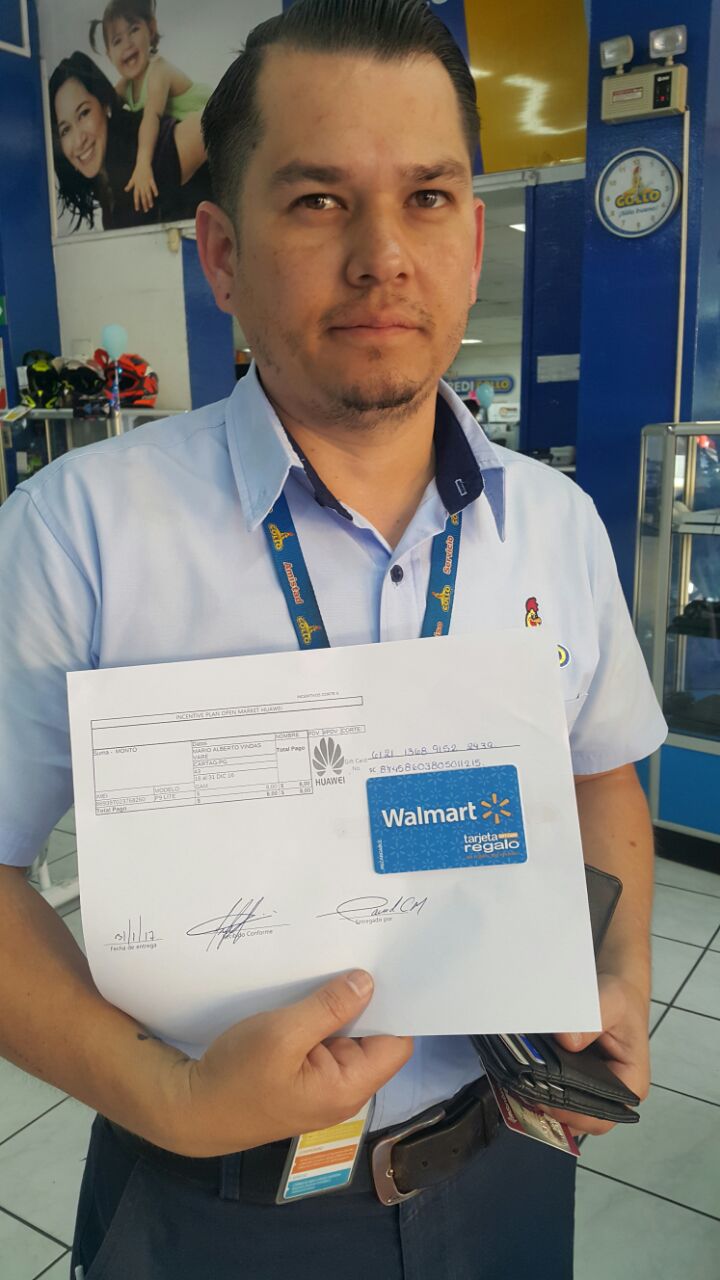 GOLLO
¡Sólo bueno!
CREDIGOLLO
GOLLO
Amistad
GOLLO
Servicio
GOLLO
INCENTIVOS CORTE 4
INCENTIVE PLAN OPEN MARKET HUAWEI
Suma - MONTO
Datos
NOMBRE
PDV
CORTE
MARIO ALBERTO VINDAS
Total Pago
CARTAGO
43
16 al 31 DIC 16
IMEI
MODELO
GAM
P9 LITE
Total Pago
HUAWEI
Gift Card 6121 1368 9152 2432
No. SC 8445860380501121S.
Walmart
tarjeta
regalo
31/1/17
Fecha de entrega
Recibido Conforme
Entregado por